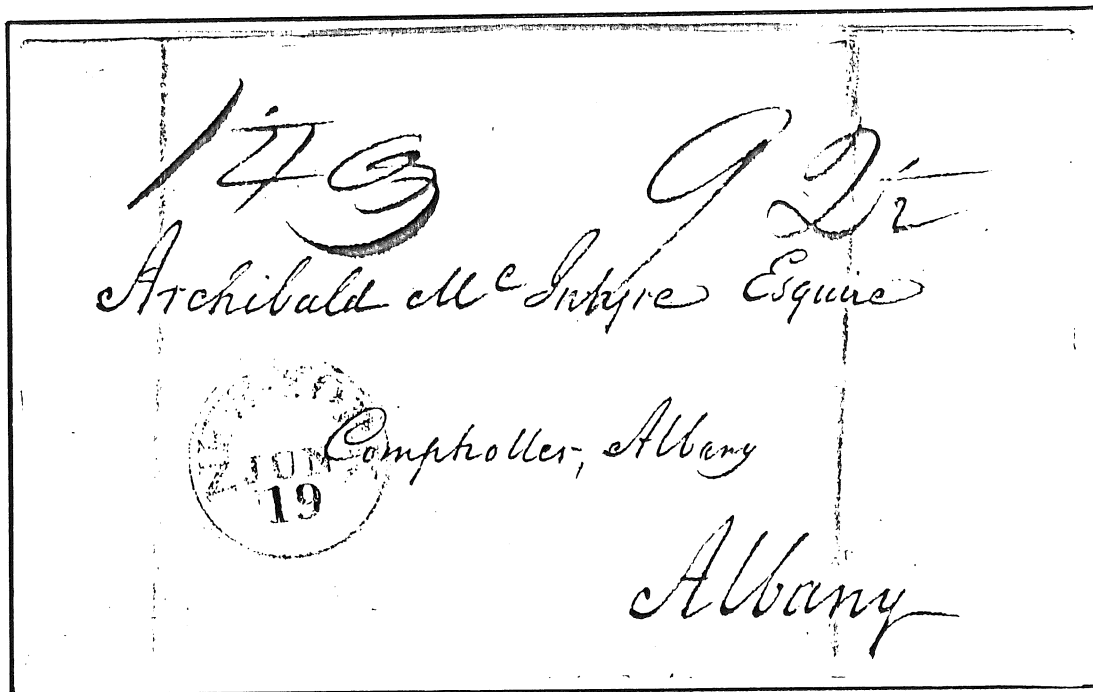 143 92½
Archibald Mc Intyre Esquire
Comptroller, Albany
19
Albany